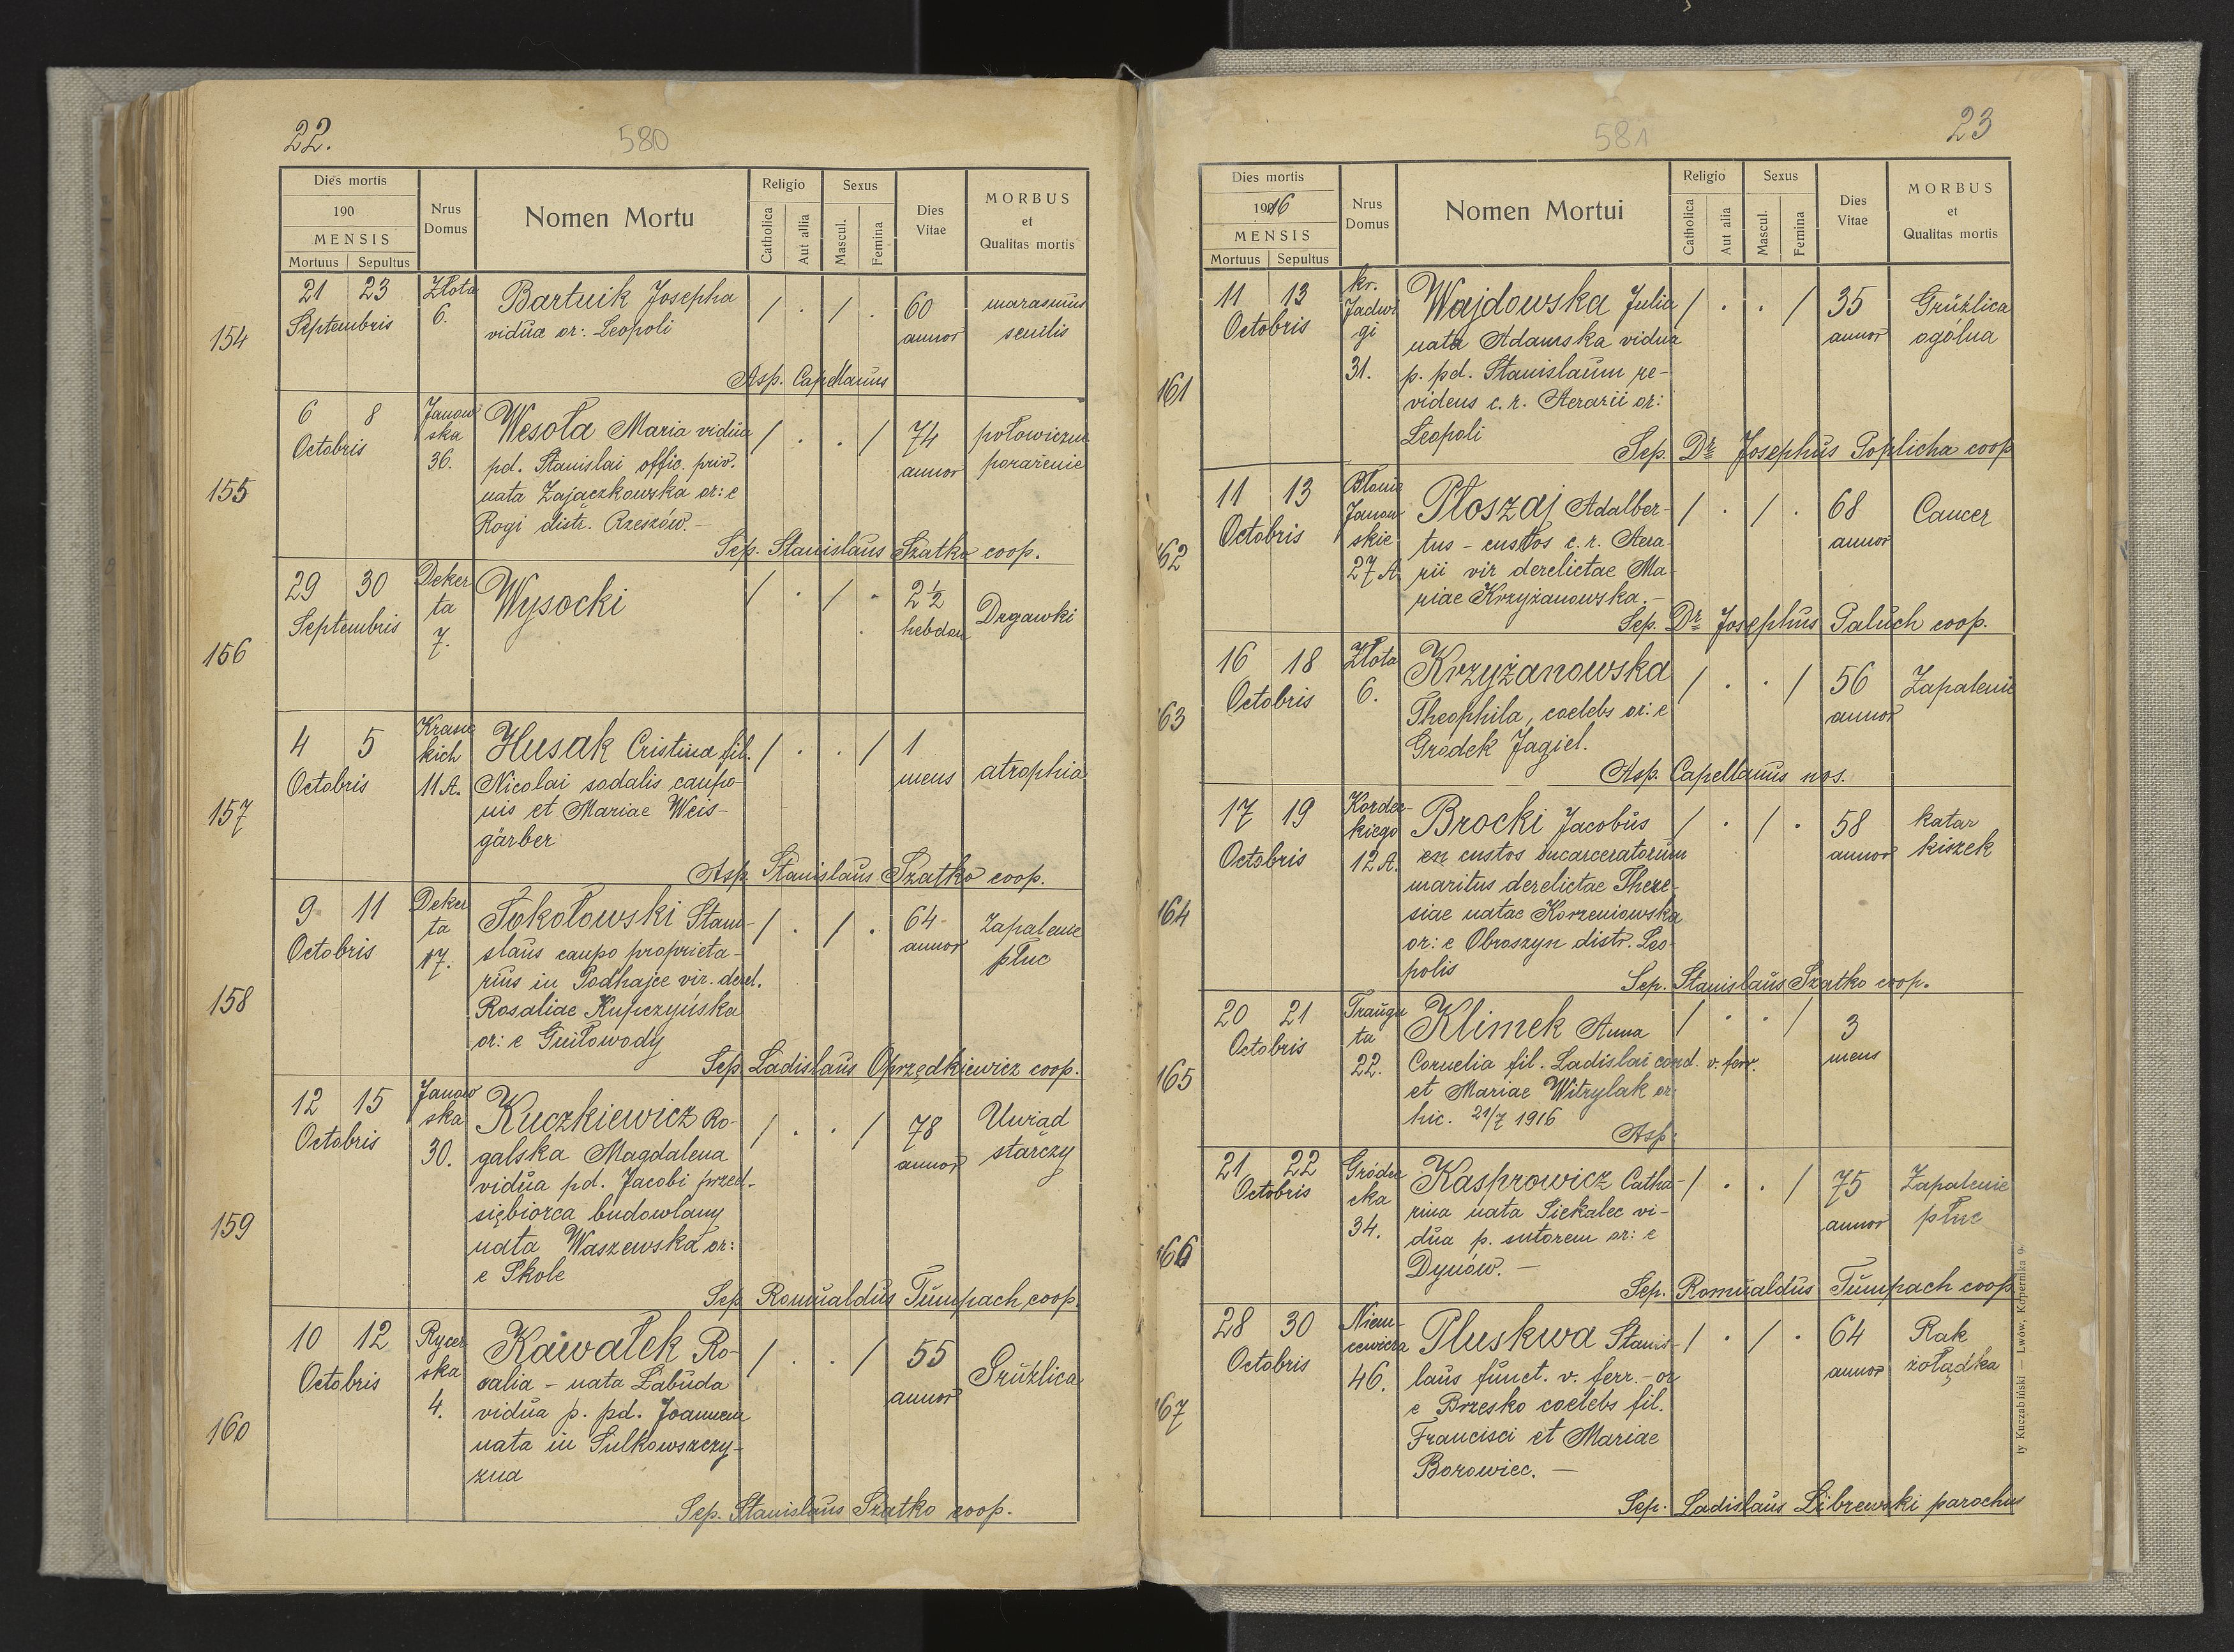 22.
580
Dies mortis
190
MENSIS
Mortuus Sepultus
Nrus Domus
Nomen Mortu
Religio
Catholica
Aut alia
Sexus
Mascul.
Femina
Dies Vitae
MORBUS
et
Qualitas mortis
154
21 23 Złota Bartnik Josepha / . / . 60 marasmus
Septembris 6. vidua or: Leopoli annor senilis
Asp. Capellanus
155
6 8 Janow Wesoła Maria vidua / . . / 74 połowiczne
Octobris ska pd. Stanislai offic. priv. annor porażenie
36. nata Zajączkowska or: e
Rogi distr. Rzeszów –
Sep. Stanislaus Szatko coop.
156
29 30 Deker Wysocki / . / . 2½ Drgawki
Septembris ta hebdom
7.
157
4 5 Krasic Husak Cristina fil. / . . / 1 atrophia
Octobris kich Nicolai sodalis caupo- mens
11 A. nis et Mariae Weis-
gärber
Asp. Stanislaus Szatko coop.
158
9 11 Deker Sokołowski Stani- / . / . 64 Zapalenie
Octobris ta slaus caupo proprieta- annor płuc
17. rius in Podhajce vir. derel.
Rosaliae Kupczyńska
or: e Gniłowody
Sep. Ladislaus Oprzędkiewicz coop.
159
12 15 Janow Kuczkiewicz Ro- / . . / 78 Uwiąd
Octobris ska galska Magdalena annor starczy
30. vidua pd. Jacobi przed-
siębiorca budowlany
nata Waszewska or:
e Skole
Sep. Romualdus Tumpach coop.
160
10 12 Rycer Kawałek Ro- / . . / 55 Gruźlica
Octobris ska salia – nata Łabuda annor
4. vidua p. pd. Joannem
nata in Sulkowszczy-
zna
Sep. Stanislaus Szatko coop.
581
23
Dies mortis
1916
MENSIS
Mortuus Sepultus
Nrus Domus
Nomen Mortui
Religio
Catholica
Aut alia
Sexus
Mascul.
Femina
Dies Vitae
MORBUS
et
Qualitas mortis
161
11 13 kr. Wajdowska Julia / . . / 35 Gruźlica
Octobris Jadwi nata Adamska vidua annor ogólna
gi p. pd. Stanislaum re-
31. videns c. r. Aerarii or:
Leopoli
Sep. Dr Josephus Poplicha coop
162
11 13 Błonie Płoszaj Adalber- / . / . 68 Cancer
Octobris Janow tus – custos c. r. Aera- annor
skie rii vir derelictae Ma-
27 A riae Krzyżanowska. –
Sep. Dr Josephus Paluch coop.
163
16 18 Złota Krzyżanowska / . . / 56 Zapalenie
Octobris 6. Theophila, coelebs or: e annor
Gródek Jagiel.
Asp. Capellanus nos.
164
17 19 Kordec- Brocki Jacobus / . / . 58 katar
Octobris kiego ex custos incarceratorum annor kiszek
12 A. maritus derelictae There-
siae natae Korzeniowska
or: e Obroszyn distr. Leo-
polis
Sep. Stanislaus Szatko coop.
165
20 21 Traugu Klimek Anna / . . / 3
Octobris ta Cornelia fil. Ladislai cond. v. ferr. mens
22. et Mariae Witrylak or:
hic. 21/7 1916
Asp:
166
21 22 Gródec Kasprowicz Catha- / . . / 75 Zapalenie
Octobris cka rina nata Siekalec vi- annor płuc
34. dua p. sutorem or: e
Dynów. –
Sep. Romualdus Tumpach coop
167
28 30 Niem- Pluskwa Stanis- / . / . 64 Rak
Octobris cewicza laus funct. v. ferr. – or annor żołądka
46. e Brzesko coelebs fil.
Francisci et Mariae
Borowiec. –
Sep. Ladislaus Librewski parochus
ty Kuczabiński — Lwów, Kopernika 9.